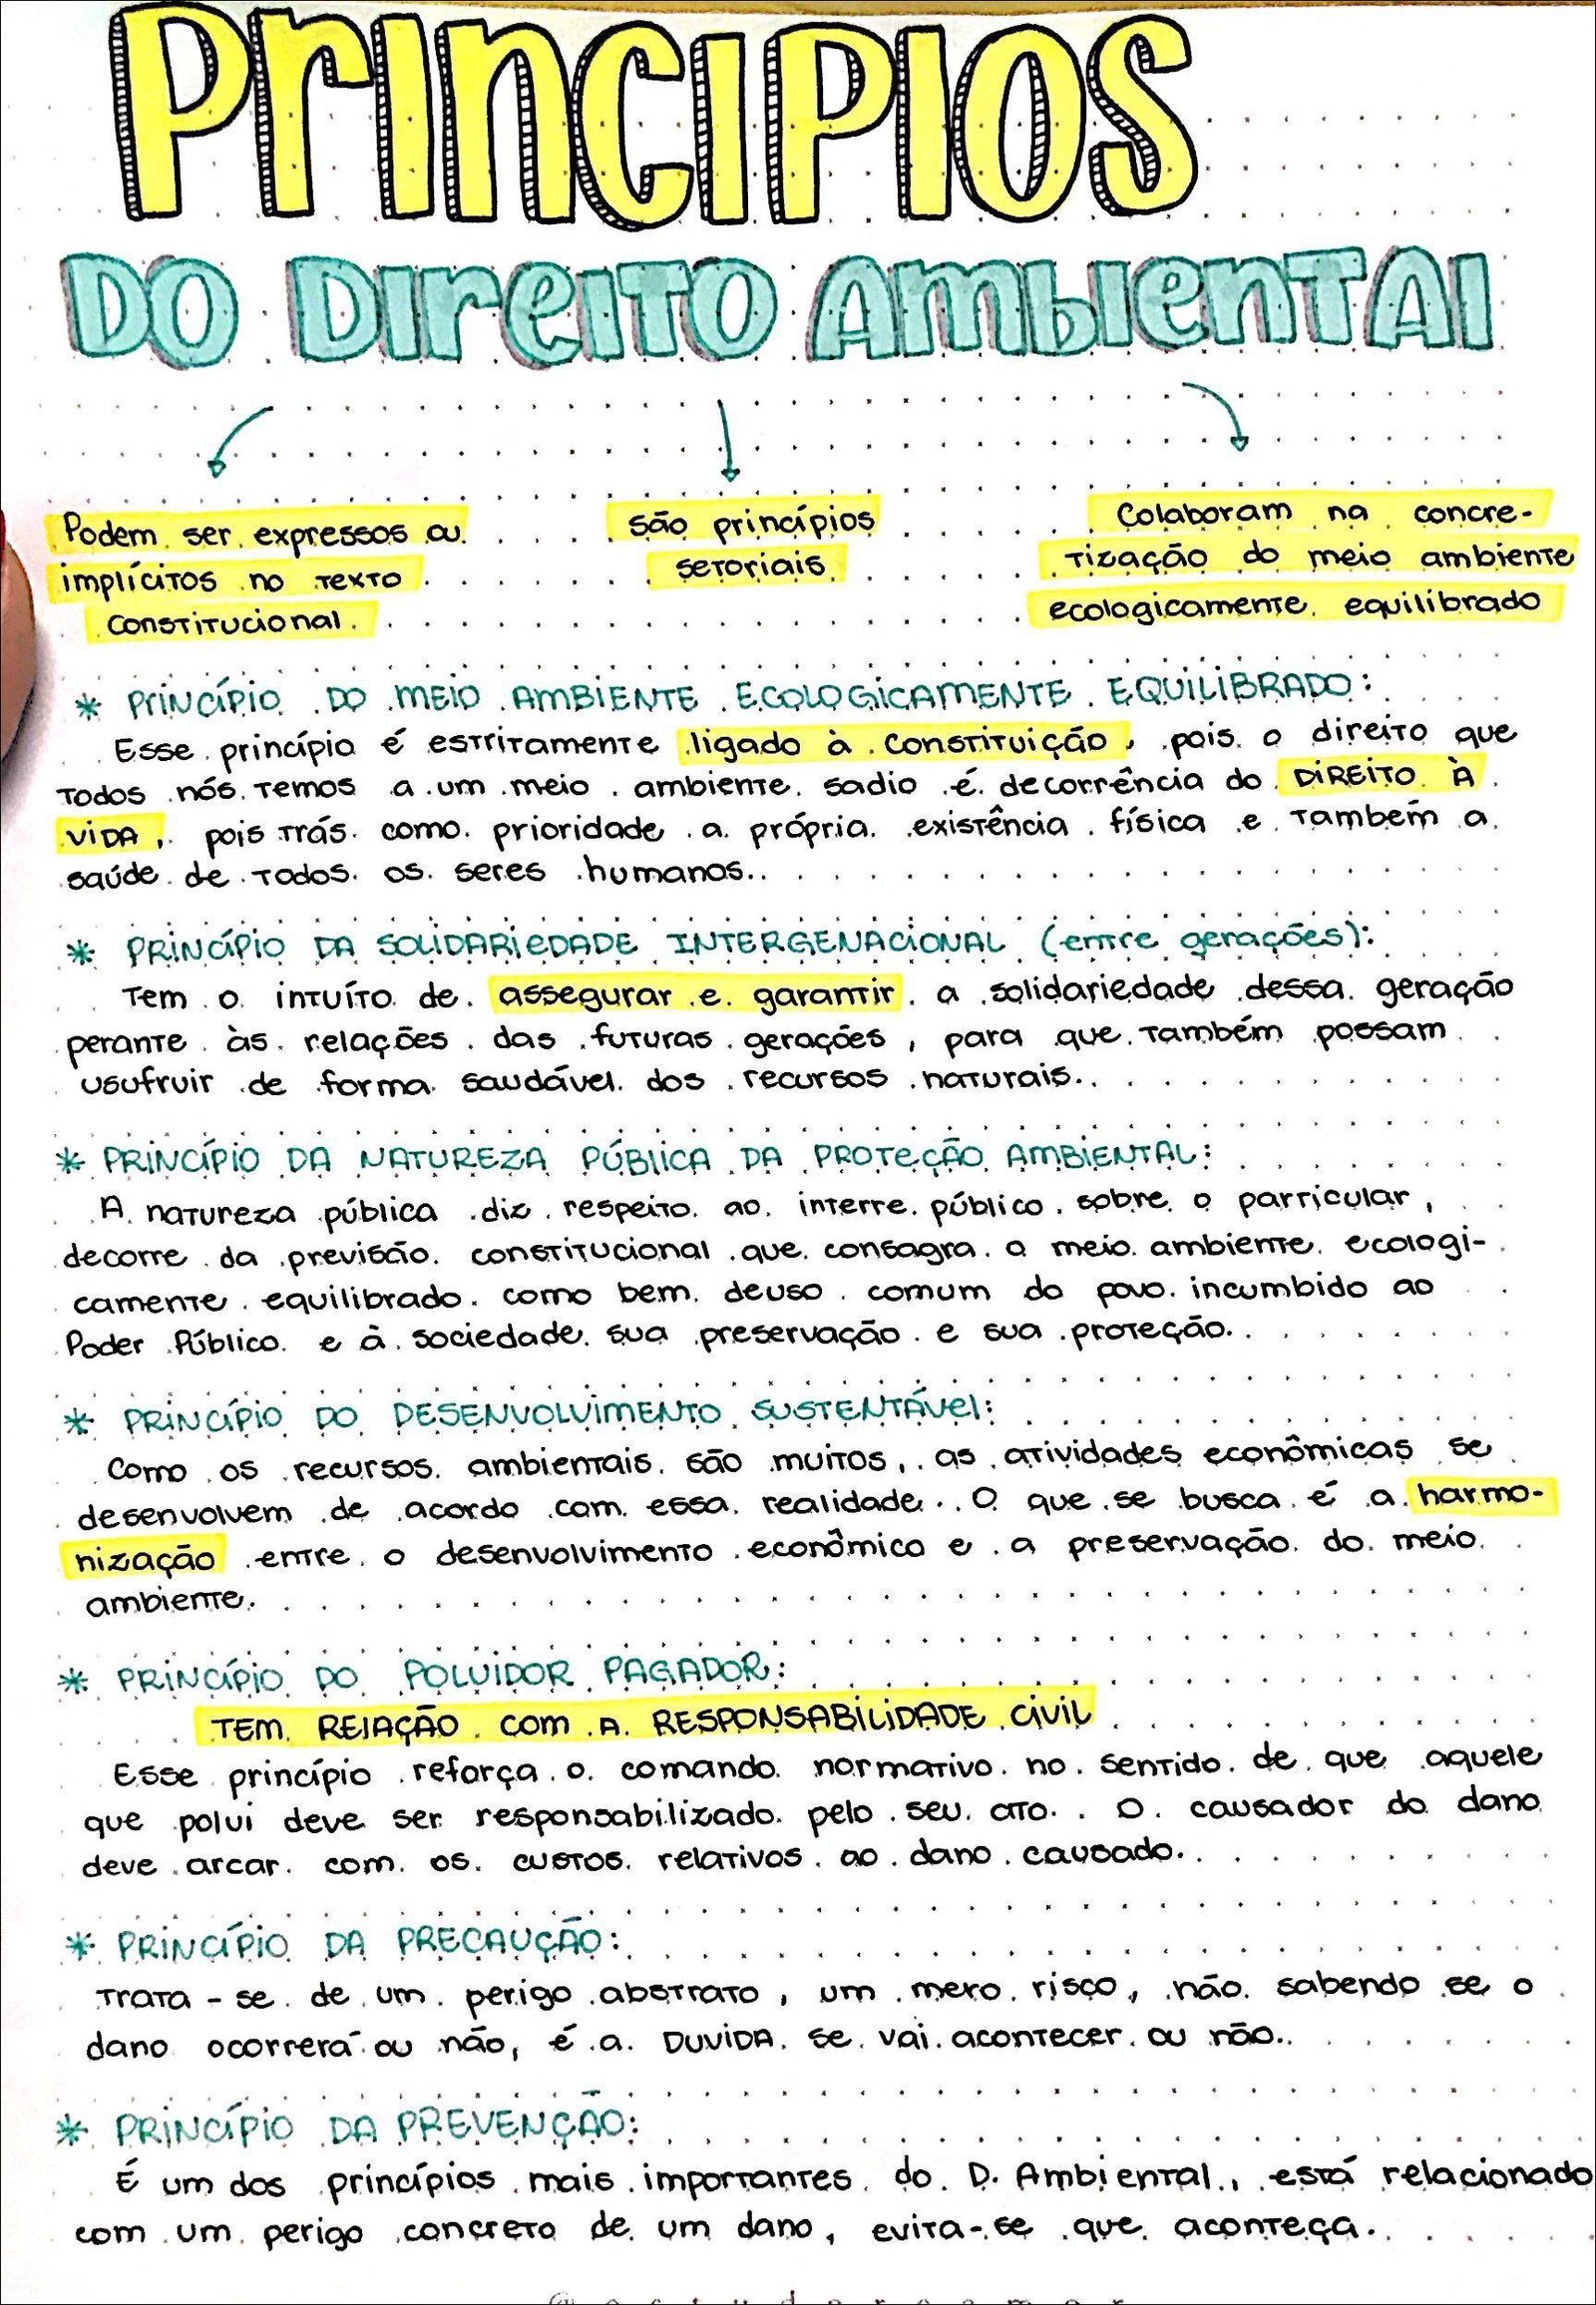 PRINCIPIOS
DO DIREITO AMBIENTAL
Podem ser expressos ou
implícitos no texto
constitucional.
são princípios
setoriais
Colaboram na concre-
tização do meio ambiente
ecologicamente equilibrado
* PRINCÍPIO DO MEIO AMBIENTE ECOLOGICAMENTE EQUILIBRADO:
Esse princípio é estritamente ligado à constituição, pois o direito que
todos nós temos a um meio ambiente sadio é decorrência do DIREITO À
VIDA, pois trás como prioridade a própria existência física e também a
saúde de todos os seres humanos.
* PRINCÍPIO DA SOLIDARIEDADE INTERGENACIONAL (entre gerações):
Tem o intuíto de assegurar e garantir a solidariedade dessa geração
perante às relações das futuras gerações, para que também possam
usufruir de forma saudável dos recursos naturais.
* PRINCÍPIO DA NATUREZA PÚBLICA DA PROTEÇÃO AMBIENTAL:
A natureza pública diz respeito ao interre público sobre o particular,
decorre da previsão constitucional que consagra o meio ambiente ecologi-
camente equilibrado como bem deuso comum do povo incumbido ao
Poder Público e à sociedade sua preservação e sua proteção.
* PRINCÍPIO DO DESENVOLVIMENTO SUSTENTÁVEL:
Como os recursos ambientais são muitos, as atividades econômicas se
desenvolvem de acordo com essa realidade. O que se busca é a harmo-
nização entre o desenvolvimento econômico e a preservação do meio
ambiente.
* PRINCÍPIO DO POLUIDOR PAGADOR:
TEM RELAÇÃO COM A RESPONSABILIDADE CIVIL
Esse princípio reforça o comando normativo no sentido de que aquele
que polui deve ser responsabilizado pelo seu ato. O causador do dano
deve arcar com os custos relativos ao dano causado.
* PRINCÍPIO DA PRECAUÇÃO:
Trata-se de um perigo abstrato, um mero risco, não sabendo se o
dano ocorrerá ou não, é a DUVIDA se vai acontecer ou não.
* PRINCÍPIO DA PREVENÇÃO:
É um dos princípios mais importantes do D. Ambiental, está relacionado
com um perigo concreto de um dano, evita-se que aconteça.